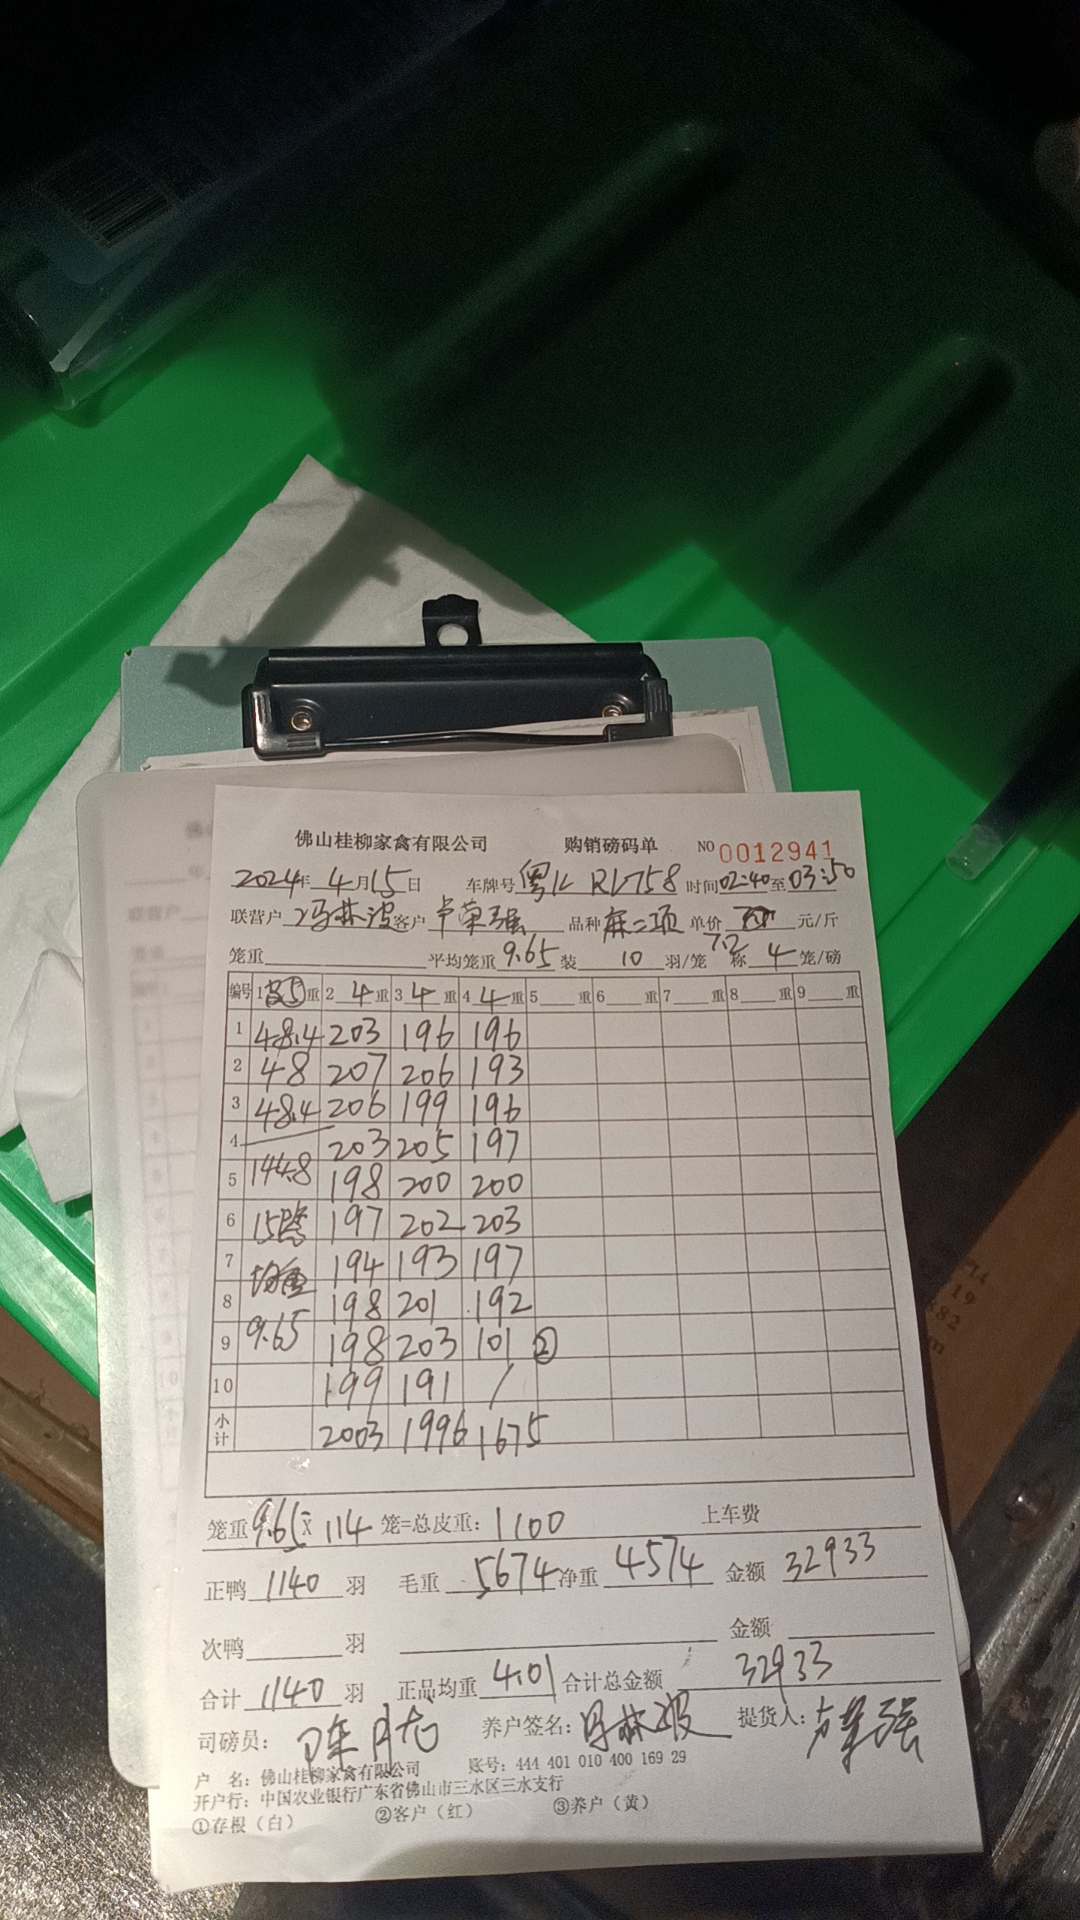 佛山桂柳家禽有限公司 购销磅码单 NO 0012941
2024年 4月15日 车牌号 粤 RL758 时间02:40至03:50
联营户 冯林波 客户 卢荣强 品种 麻二项 单价 元/斤
7.2
笼重 平均笼重 9.65 装 10 羽/笼 称 4 笼/磅
编号 1 皮⑤ 重 2 4 重 3 4 重 4 4 重 5 重 6 重 7 重 8 重 9 重
1 48.4 203 196 196
2 48 207 206 193
3 48.4 206 199 196
4 203 205 197
5 144.8 198 200 200
6 15 197 202 203
7 均重 194 193 197
8 198 201 192
9 9.65 198 203 101 ②
10 199 191 /
小计 2003 1996 1675
笼重 9.65 X 114 笼=总皮重: 1100 上车费
正鸭 1140 羽 毛重 5674 净重 4574 金额 32933
次鸭 羽 金额
合计 1140 羽 正品均重 4.01 合计总金额 32933
司磅员: 陈月 养户签名: 冯林波 提货人: 卢荣强
户 名: 佛山桂柳家禽有限公司 账号: 444 401 010 400 169 29
开户行: 中国农业银行广东省佛山市三水区三水支行
①存根（白） ②客户（红） ③养户（黄）